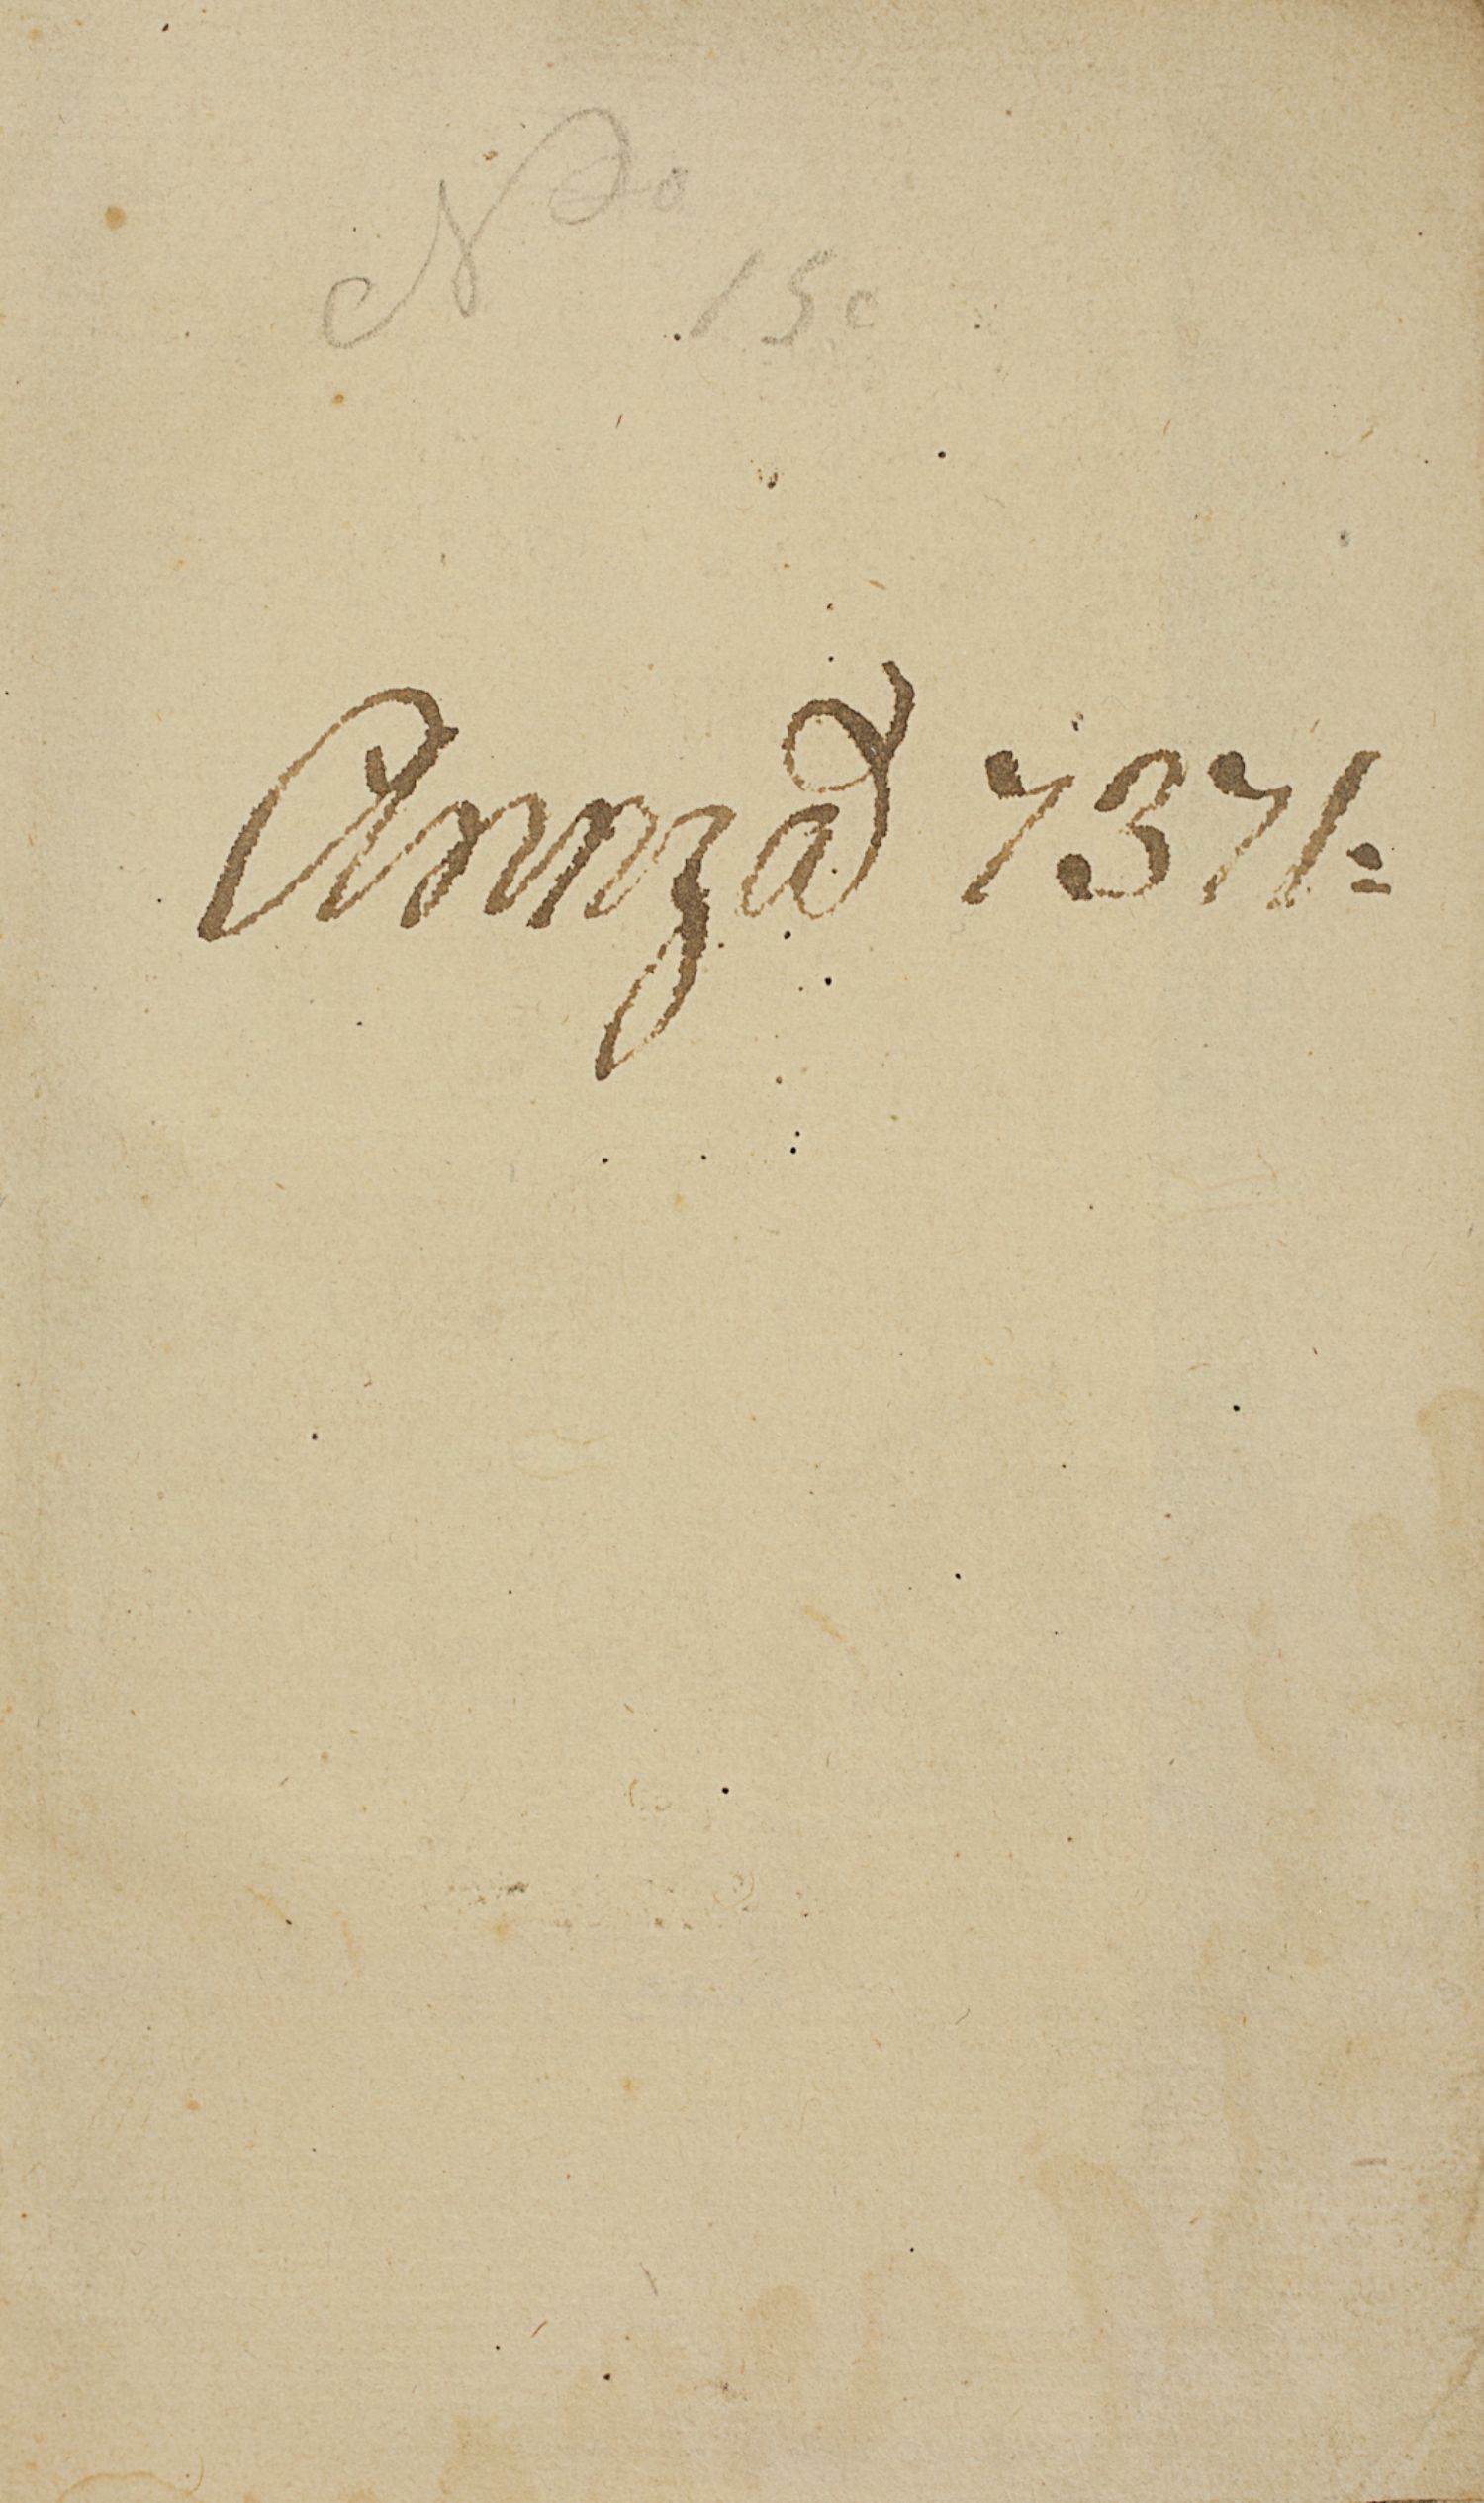 No
15c
Annzad 7371.